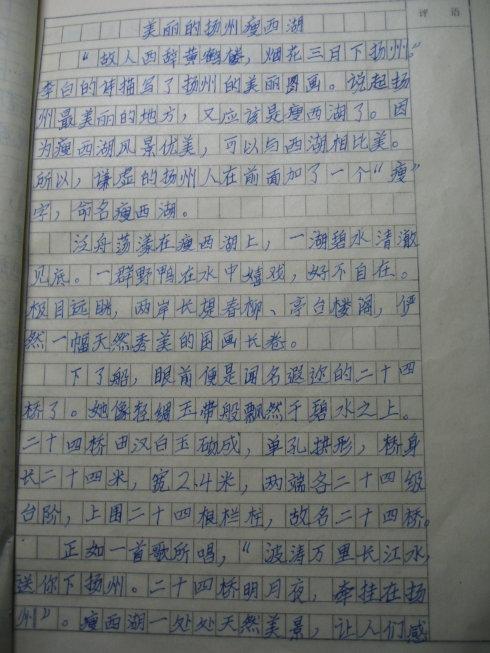 评 语
美丽的扬州瘦西湖
“故人西辞黄鹤楼，烟花三月下扬州。”
李白的诗描写了扬州的美丽图画。说起扬
州最美丽的地方，又应该是瘦西湖了。因
为瘦西湖风景优美，可以与西湖相比美。
所以，谦虚的扬州人在前面加了一个“瘦”
字，命名瘦西湖。
泛舟荡漾在瘦西湖上，一湖碧水清澈
见底。一群野鸭在水中嬉戏，好不自在。
极目远眺，两岸长堤春柳、亭台楼阁，俨
然一幅天然秀美的国画长卷。
下了船，眼前便是闻名遐迩的二十四
桥了。她像轻绸玉带般飘然于碧水之上。
二十四桥由汉白玉砌成，单孔拱形，桥身
长二十四米，宽2.4米，两端各二十四级
台阶，上围二十四根栏柱，故名二十四桥。
正如一首歌所唱，“波涛万里长江水，
送你下扬州。二十四桥明月夜，牵挂在扬
州”。瘦西湖一处处天然美景，让人们感